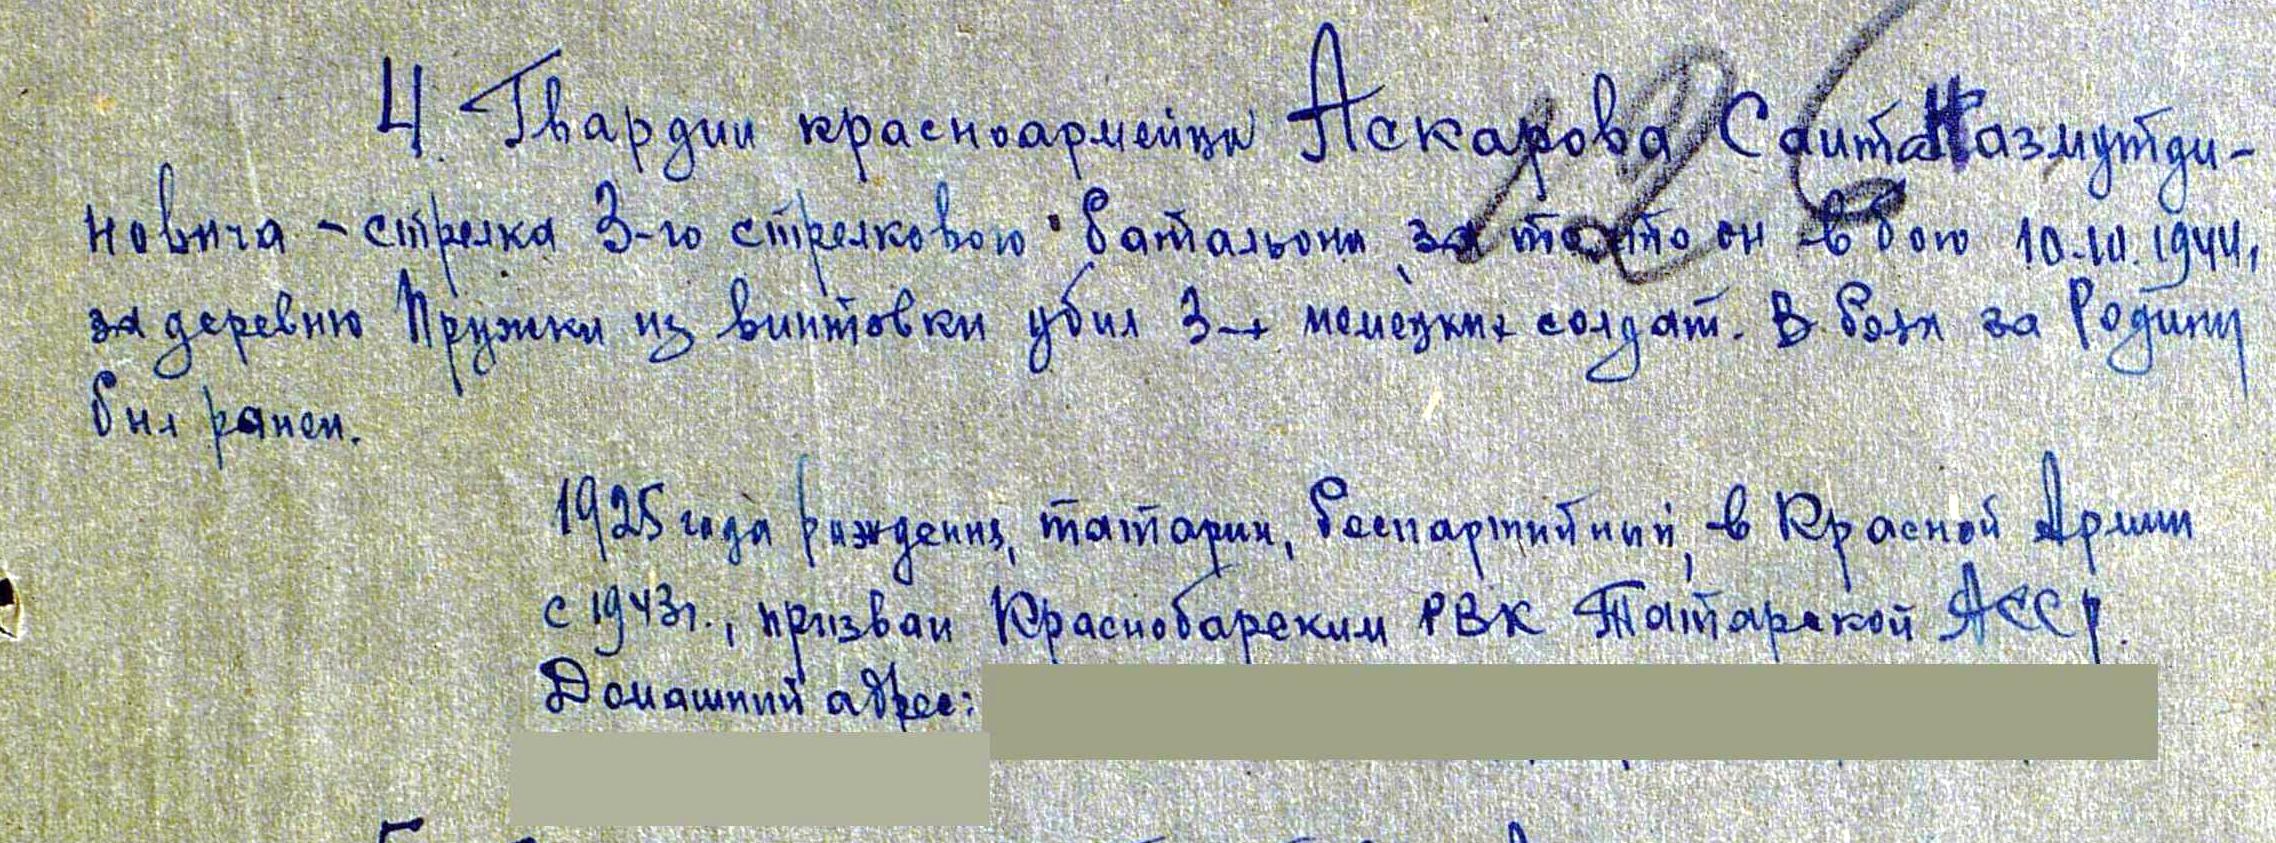 4. Гвардии красноармейца Аскарова Саита Назмутди-
новича - стрелка 3-го стрелкового батальона, за то что он в бою 10.10.1944г
за деревню Пружки из винтовки убил 3-х немецких солдат. В боях за Родину
был ранен.
1925 года рождения, татарин, беспартийный, в Красной Армии
с 1943г., призван Краснобарским РВК Татарской АССР.
Домашний адрес: